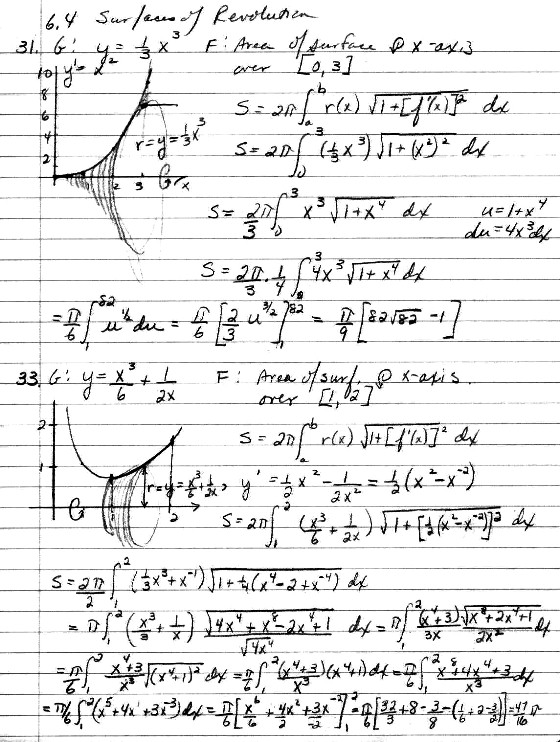 6.4 Surfaces of Revolution
31. G: y = 1/3 x³ F: Area of surface ↻ x-axis
y' = x² over [0, 3]
10
8
6
4
2
r = y = 1/3 x³
2 3 x
S = 2π ∫_a^b r(x) √(1+[f'(x)]²) dx
S = 2π ∫_0^3 (1/3 x³) √(1+(x²)²) dx
S = 2π/3 ∫_0^3 x³ √(1+x⁴) dx u = 1+x⁴
du = 4x³dx
S = 2π/3 · 1/4 ∫_0^3 4x³ √(1+x⁴) dx
= π/6 ∫_1^82 u^(1/2) du = π/6 [2/3 u^(3/2)]_1^82 = π/9 [82√82 - 1]
33. G: y = x³/6 + 1/2x F: Area of surf. ↻ x-axis.
over [1, 2]
2
1
r = y = x³/6 + 1/2x,
2
S = 2π ∫_a^b r(x) √(1+[f'(x)]²) dx
y' = 1/2 x² - 1/2x² = 1/2 (x² - x⁻²)
S = 2π ∫_1^2 (x³/6 + 1/2x) √(1+[1/2(x²-x⁻²)]²) dx
S = 2π/2 ∫_1^2 (1/3 x³ + x⁻¹) √(1+1/4(x⁴-2+x⁻⁴)) dx
= π ∫_1^2 (x³/3 + 1/x) √(4x⁴+x⁸-2x⁴+1)/√(4x⁴) dx = π ∫_1^2 (x⁴+3)/3x √(x⁸+2x⁴+1)/2x² dx
= π/6 ∫_1^2 (x⁴+3)/x³ √((x⁴+1)²) dx = π/6 ∫_1^2 (x⁴+3)(x⁴+1)/x³ dx = π/6 ∫_1^2 (x⁸+4x⁴+3)/x³ dx
= π/6 ∫_1^2 (x⁵+4x+3x⁻³) dx = π/6 [x⁶/6 + 4x²/2 + 3x⁻²/-2]_1^2 = π/6 [32/3+8-3/8-(1/6+2-3/2)] = 47/16 π